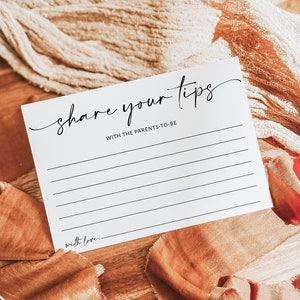 share your tips
WITH THE PARENTS-TO-BE
with love,